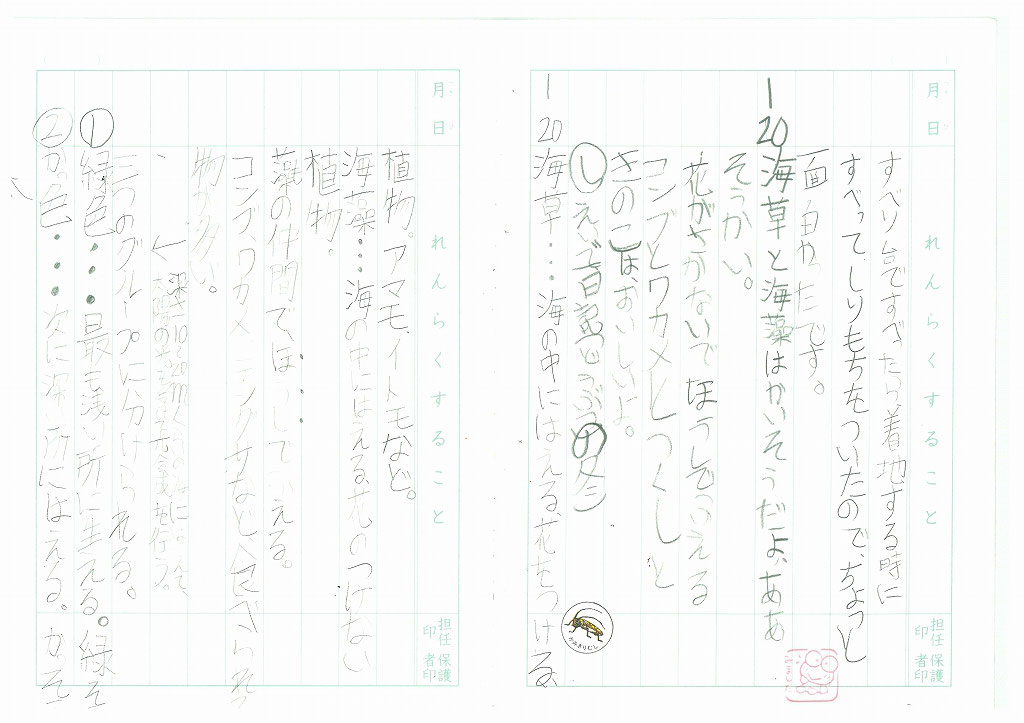 月 日
れんらくすること
担任印
保護者印
すべり台ですべったら、着地する時に
すべって、しりもちをついたので、ちょっと
面白かったです。
1 20 海草と海藻はかいそうだよ、ああ
そうかい。
花がさかないでほうしでふえる
コンブとワカメとつくしと
きのこは、おいしいよ。
① 日記 の冬
1 20 海草…海の中にはえる、花をつける、
かみきりむし
月 日
れんらくすること
担任印
保護者印
植物。アマモ、イトモなど。
海藻…海の中にはえる、花のつけない
植物。
藻の仲間でほうしでふえる。
コンブ、ワカメ、テングサなど食べられ
物が多い。
深さ10～20m
三つのグループに分けられる。
① 緑色…最も浅い所に生える。緑そ
② かっ色…次に深い所にはえる。かそ